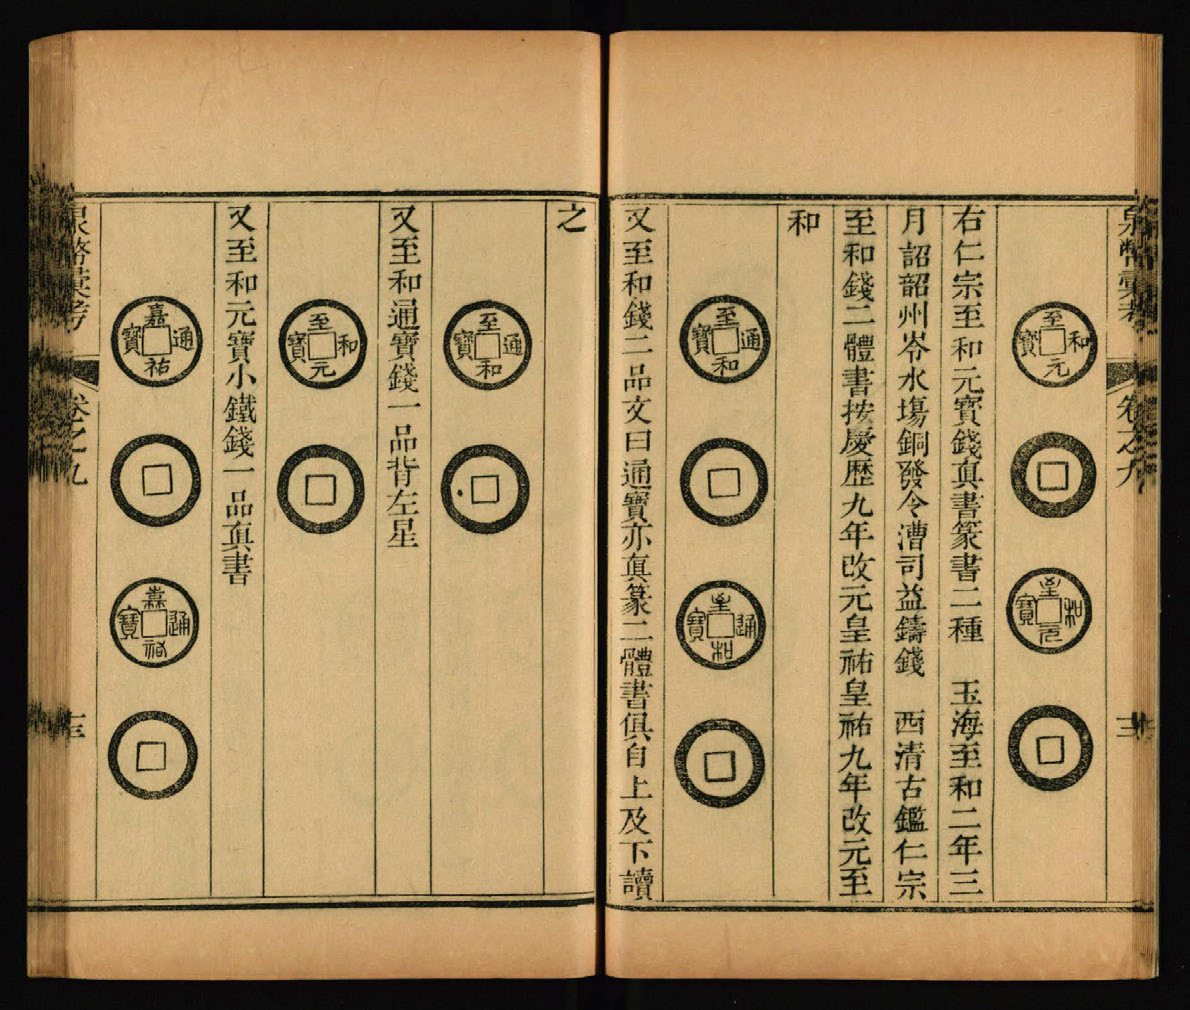 泉幣彙考 卷之九
至和元寶
至和元寶
右仁宗至和元寶錢真書篆書二種 玉海至和二年三
月詔韶州岑水場銅發令漕司益鑄錢 西清古鑑仁宗
至和錢二體書按慶歷九年改元皇祐皇祐九年改元至
和
至和通寶
至和通寶
又至和錢二品文曰通寶亦真篆二體書俱自上及下讀
之
至和通寶
又至和通寶錢一品背左星
至和元寶
又至和元寶小鐵錢一品真書
嘉祐通寶
嘉祐通寶
泉幣彙考 卷之九